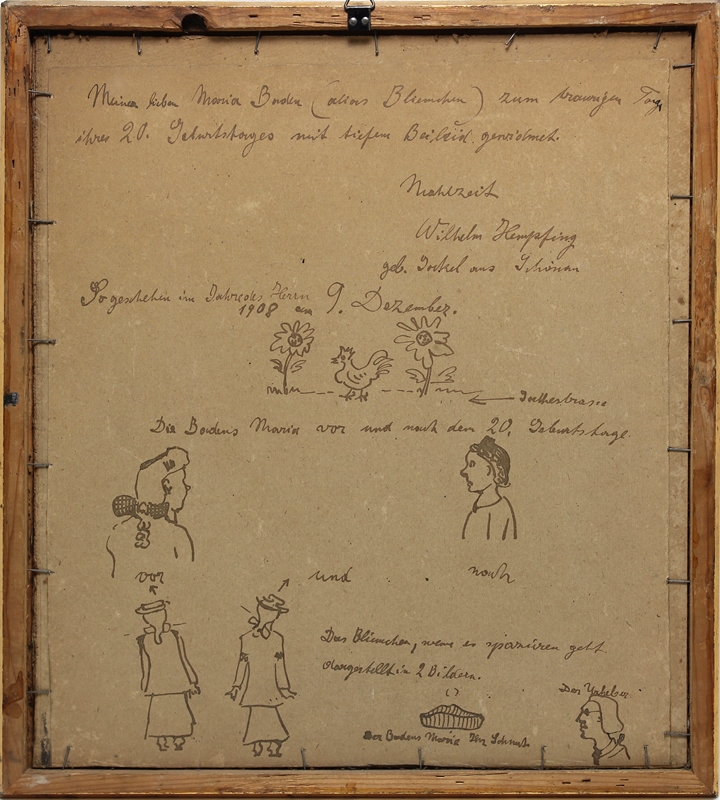 Meiner lieben Maria Baden (alias Bliemchen) zum traurigen Tage
ihres 20. Geburtstages mit tiefem Beileid gewidmet.
Mahlzeit
Wilhelm Hempfing
geb. Jockel aus Schönau
So geschehen im Jahre des Herrn
1908 am 9. Dezember.
Die Badens Maria vor und nach dem 20. Geburtstage.
vor und nach
Das Bliemchen, wenn es spazieren geht
dargestellt in 2 Bildern.
Der
Der Badens Maria Ihr